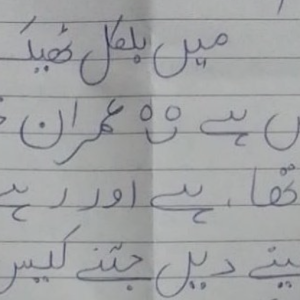 میں بلکل ٹھیک
ہے وہ عمران
تھا، ہے اور رہے
دیں جتنے کیس